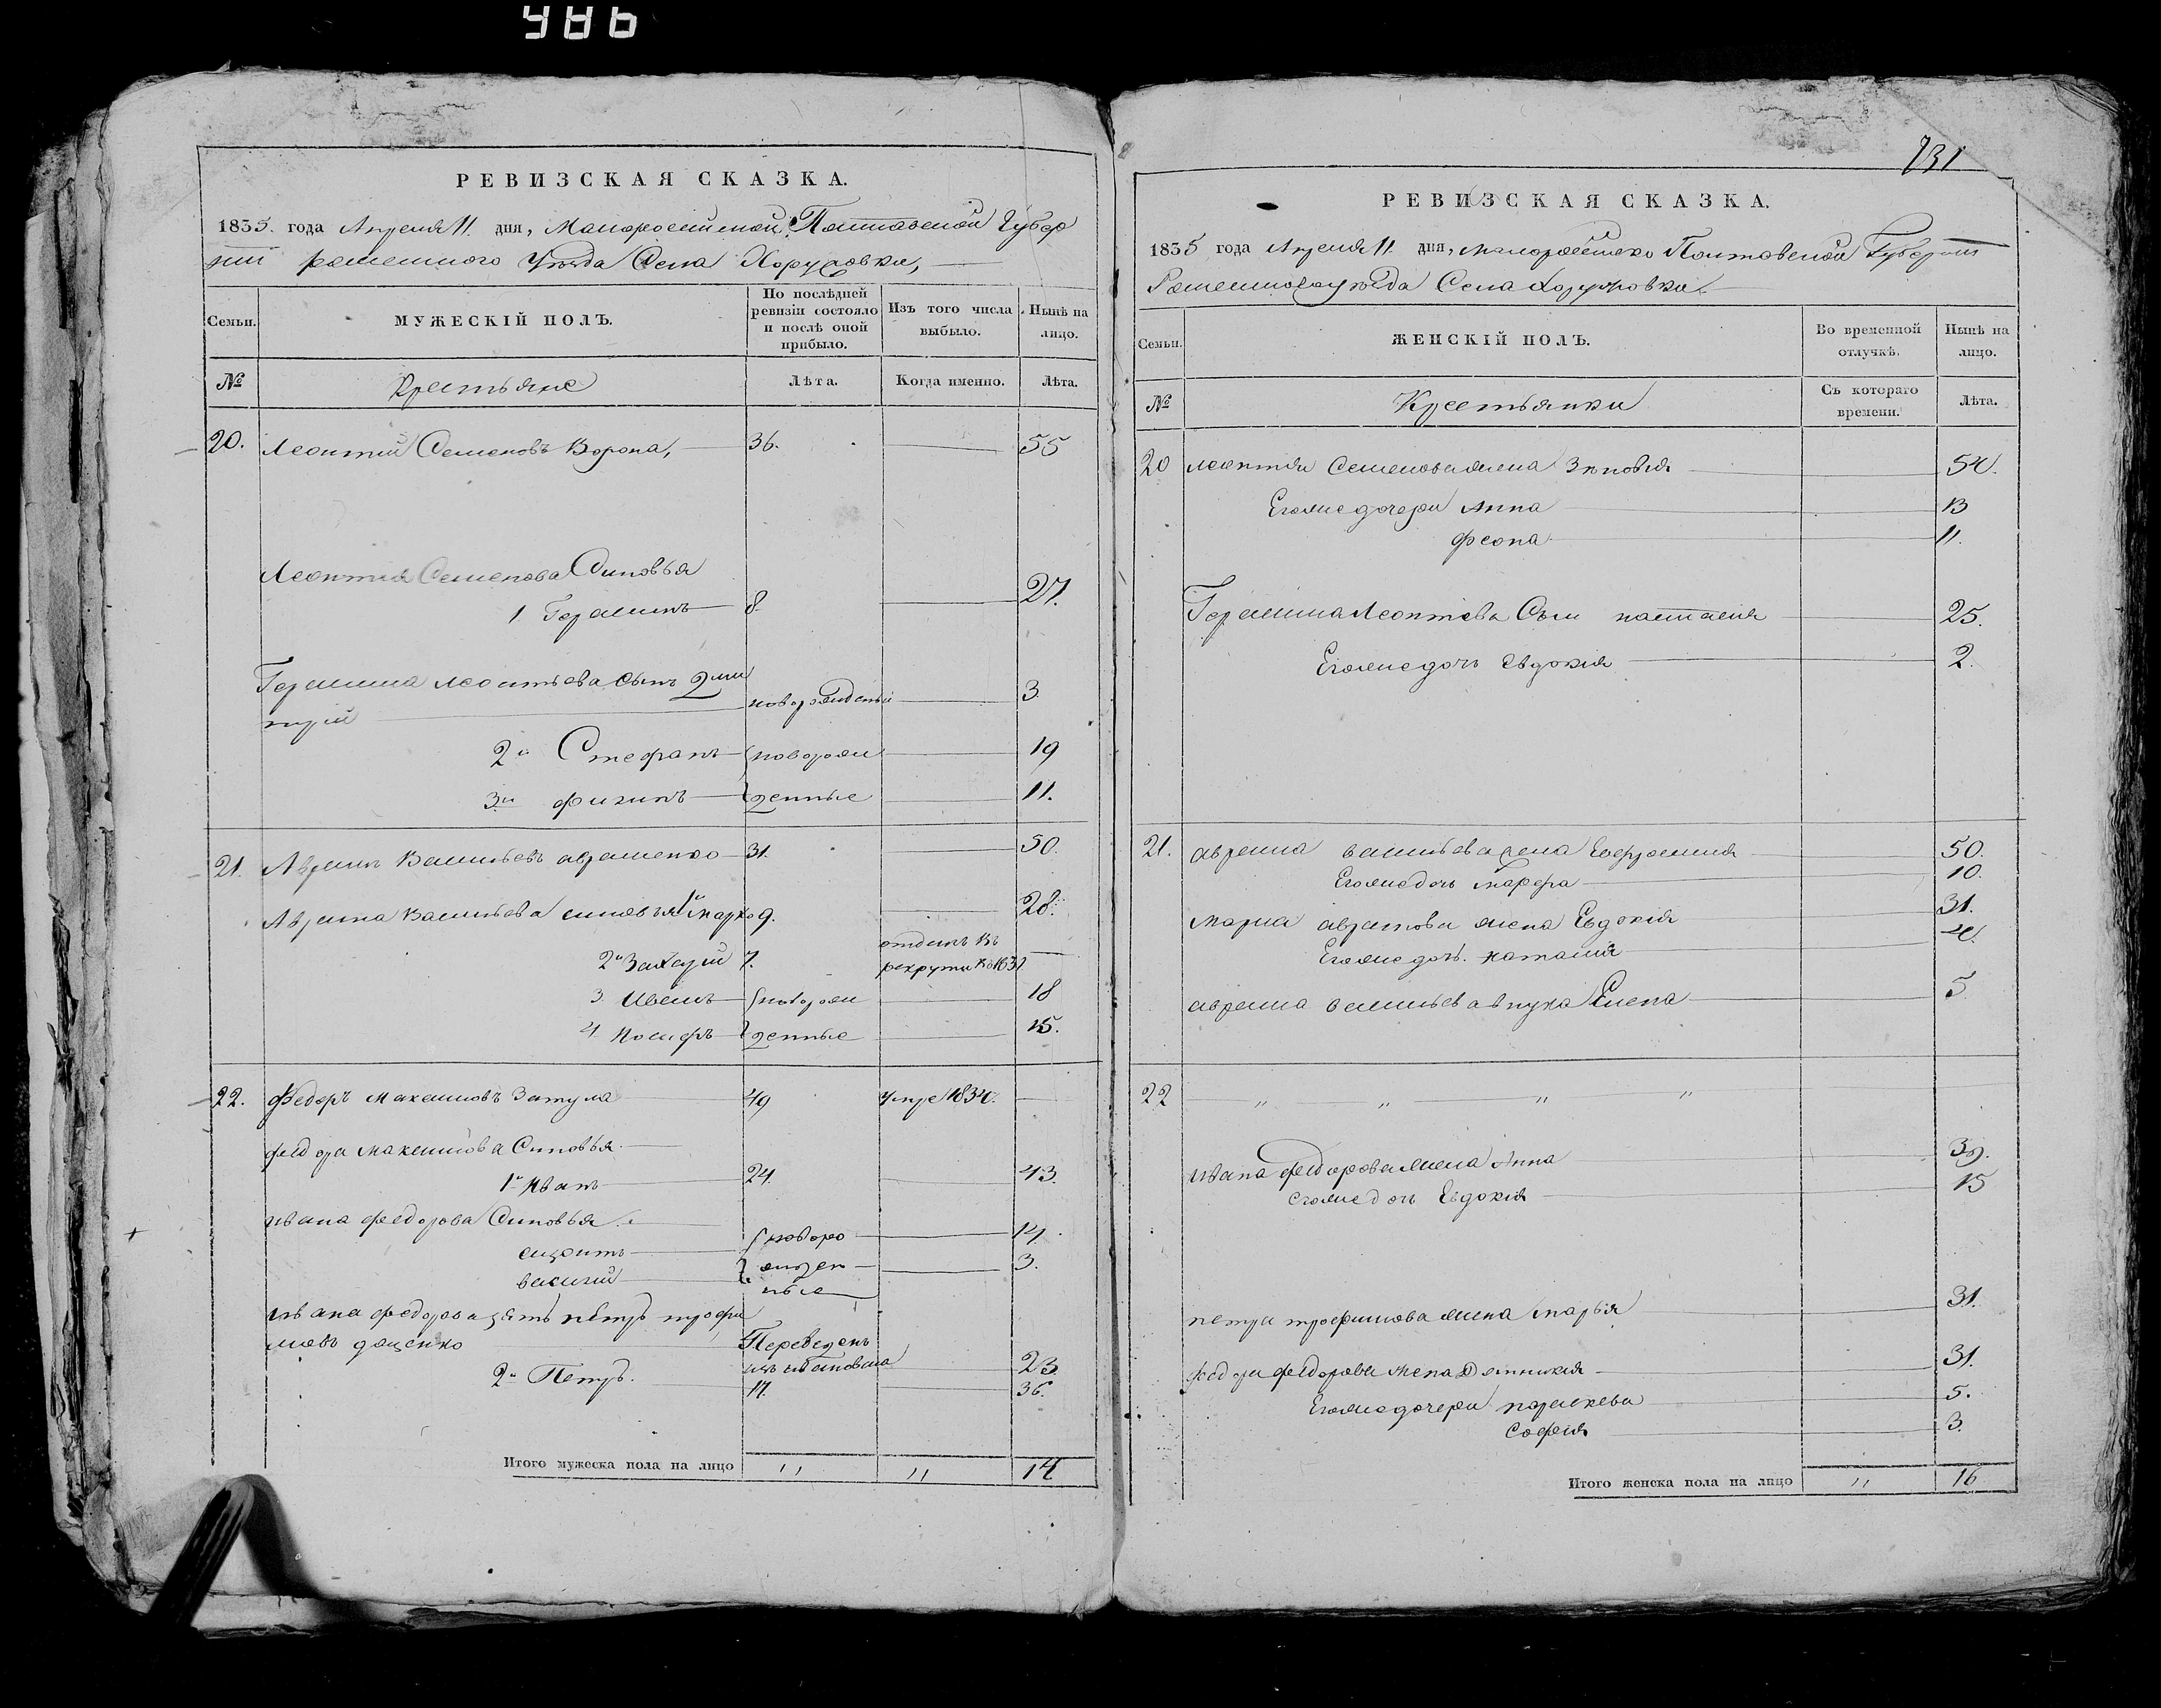 986
РЕВИЗСКАЯ СКАЗКА.
1835. года Апреля 11. дня, Малоросийской Полтавской Губер
нии роменского Уѣзда Села Хоружовки,
Семьи.
МУЖЕСКІЙ ПОЛЪ.
По послѣдней ревизіи состояло и послѣ оной прибыло.
Изъ того числа выбыло.
Нынѣ на лицо.
№
Крестьяне
Лѣта.
Когда именно.
Лѣта.
20. Леонтий Семеновъ Ворона, 36. 55
Леонтия Семенова Сыновья
1 Герасимъ 8. 27.
Герасима леонтьева сынъ
новорожденный 3
2й Стефанъ новорож 19
3й филипъ денные 11.
21. Абрамъ Васильевъ абраменко 31. 50.
Абрама Васильева сыновья 1й Марко 9. 28.
2й Захарий 7. отданъ въ
рекруты
3. Иванъ новорож 18
4 Иосифъ денные 15.
22. Федоръ Максимовъ Затула 49 умре 1834.
федора Максимова Сыновья
1й Иванъ 24. 43.
ивана федорова Сыновья
новоро 14.
жден 3.
василий
ные
ивана федорова зять петръ трофи
мовъ доценко Переведенъ
23.
2й Петръ. 17. 36.
Итого мужеска пола на лицо " " 14
731
РЕВИЗСКАЯ СКАЗКА.
1835 года Апреля 11. дня, Полтавской Губернии
Села Хоружовки.
Семьи.
ЖЕНСКІЙ ПОЛЪ.
Во временной отлучкѣ.
Нынѣ на лицо.
№
Крестьянки
Съ котораго времени.
Лѣта.
20 леонтия Семенова жена Зѣновия 54.
Егожже дочери Анна 13
феона 11.
Герасима Леонтева настасия 25.
Егоже дочь Евдокия 2.
21. абрама васильева жена Ефросиния 50.
Егоже дочь марфа 10.
марка абрамова жена Евдокия 31.
Егоже дочь. наталия 4.
абрама васильева внука Елена 5
22 " " " "
ивана федорова жена Анна 39.
егоже дочь Евдокия 15
петра трофимова жена марья 31.
федора федорова жена 31.
Егоже дочери параскева 5.
София 3.
Итого женска пола на лицо " 16